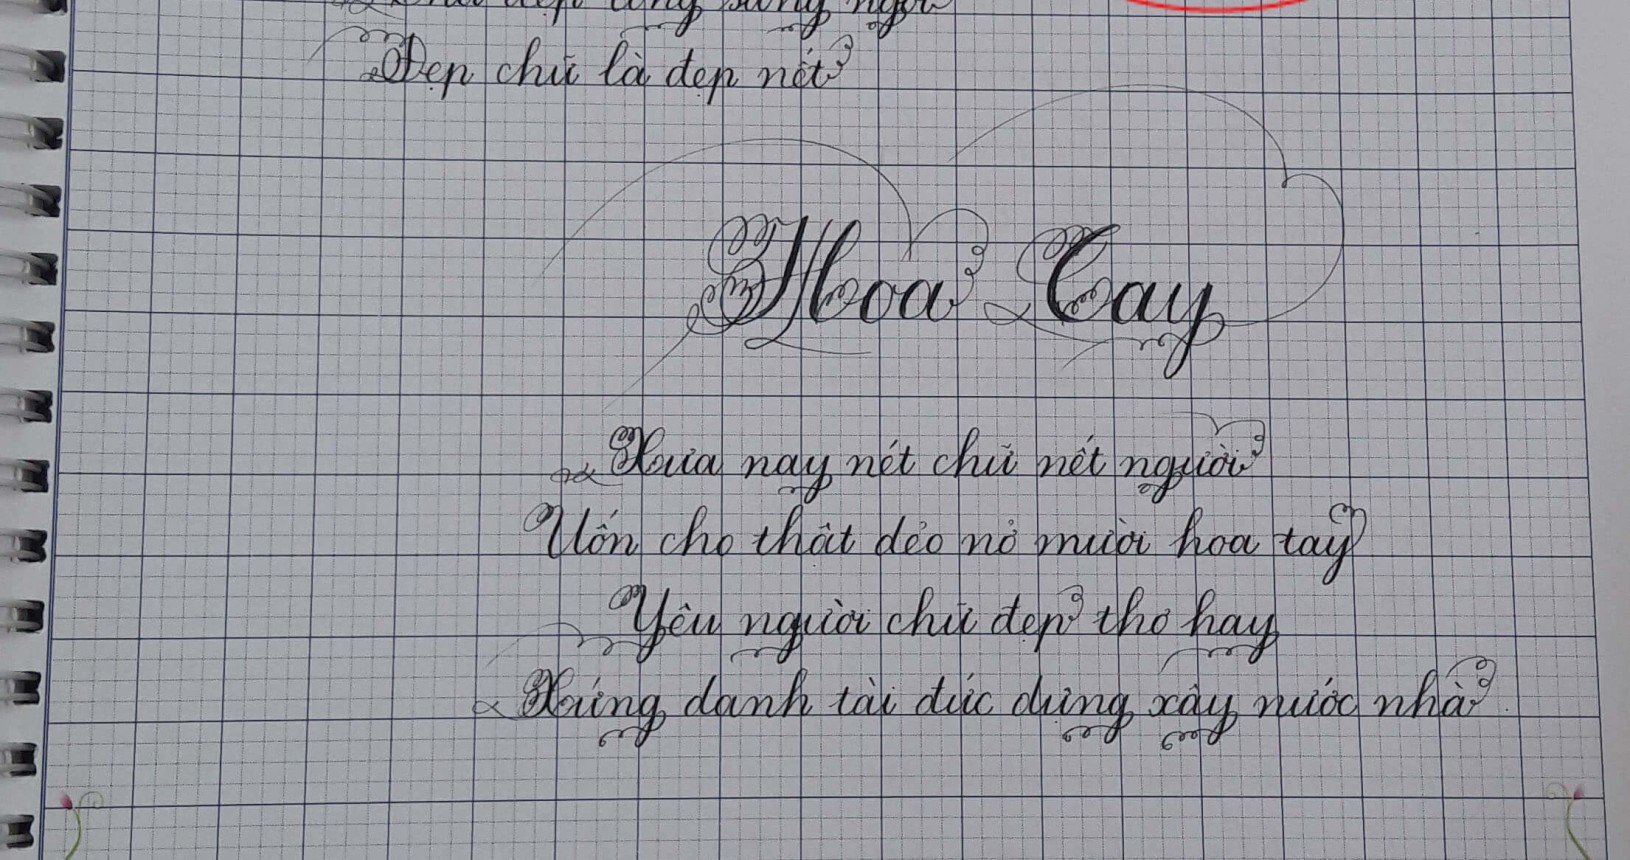 đẹp cũng ngời
Đẹp chữ là đẹp nét
Hoa Tay
Xưa nay nét chữ nét người
Uốn cho thật dẻo nở mười hoa tay
Yêu người chữ đẹp thơ hay
Xứng danh tài đức dựng xây nước nhà